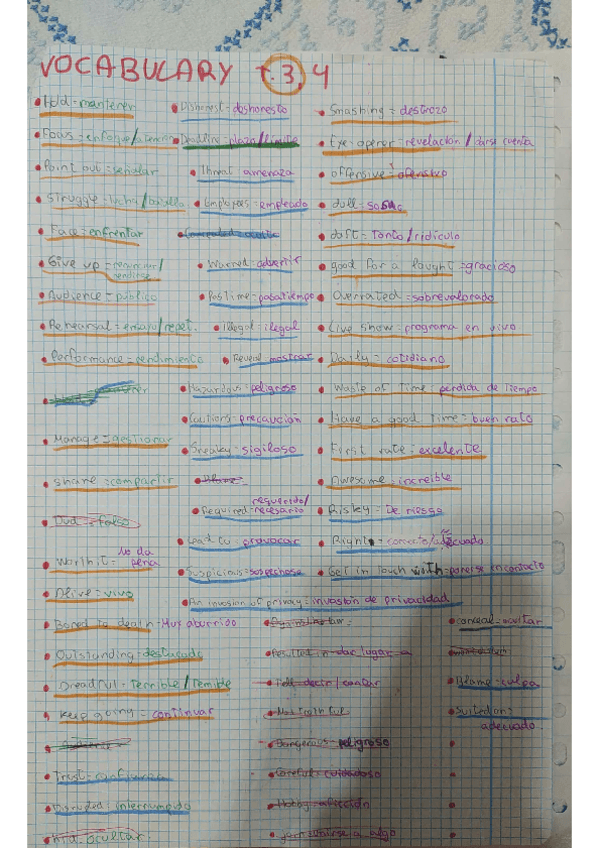 VOCABULARY t.3, 4
Hold = mantener
Focus = enfoque/atencion
Point out = señalar
Struggle = lucha/batalla
Face = enfrentar
Give up = renunciar/
rendirse
Audience = público
Rehearsal = ensayo/repet.
Performance = rendimiento
Manage = gestionar
Share = compartir
Dud = falso
Worth it = No da
pena
Alive = vivo
Bored to death = Muy aburrido
Outstanding = destacado
Dreadful = Terrible/Temible
Keep going = continuar
Trust = confianza
Disrupted = interrumpido
Hid = ocultar
Dishonest = deshonesto
Deadline = plazo/límite
Threat = amenaza
Employees = empleado
Warned = advertir
Pastime = pasatiempo
Illegal = ilegal
Reveal = mostrar
Hazardous = peligroso
Cautions = precaución
Sneaky = sigiloso
Blame =
requerido/
Required = necesario
Lead to = provocar
Suspicious = sospechoso
An invasion of privacy = invasión de privacidad
Resulted in = dar lugar a
Tell = decir/contar
Dangerous = peligroso
Careful = cuidadoso
Hobby = afición
Smashing = destrozo
Eye-opener = revelación/darse cuenta
Offensive = ofensivo
dull = soso
daft = Tonto/ridículo
good for a laught = gracioso
Overrated = sobrevalorado
Live show = programa en vivo
Daily = cotidiano
Waste of Time = perdida de Tiempo
Have a good Time = buen rato
First rate = excelente
Awesome = increible
Risky = De riesgo
Right = correcto/adecuado
Get in touch with = ponerse en contacto
conceal = ocultar
Blame = culpa
Suited on =
adecuado.